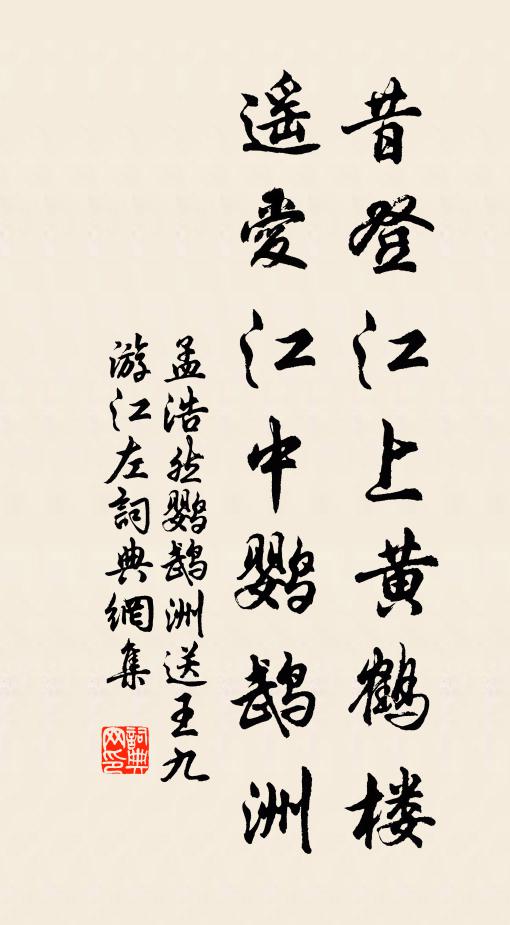 昔登江上黄鹤楼
遥爱江中鹦鹉洲
孟浩然鹦鹉洲送王九
游江左詞典網集
詞典
网印